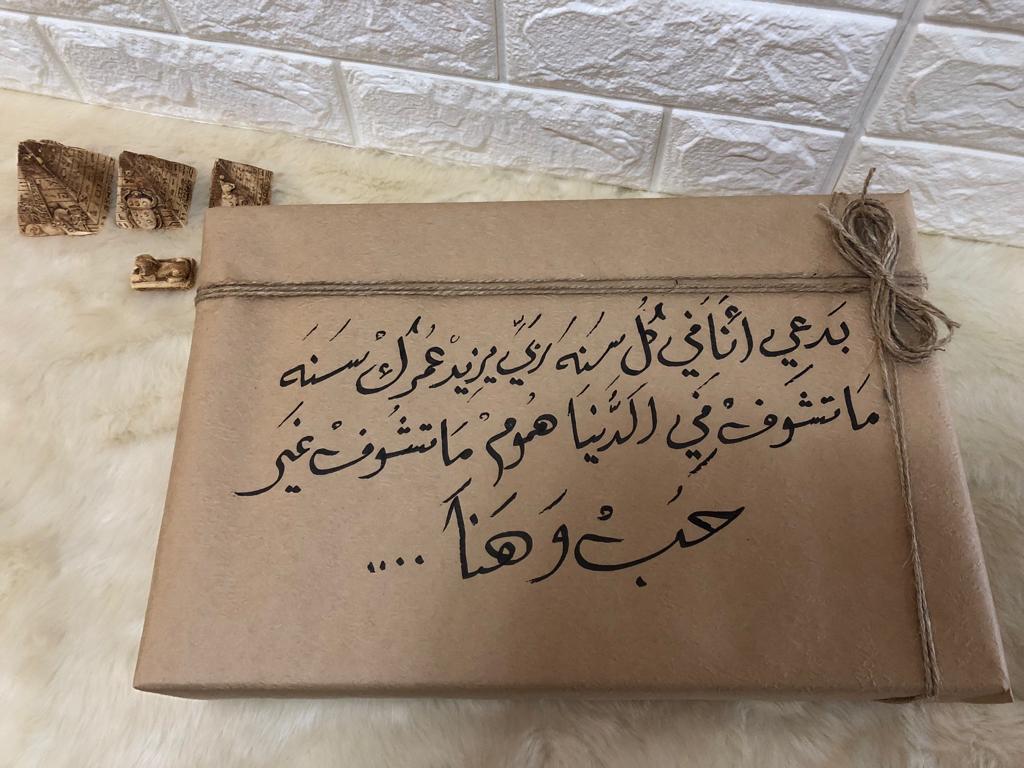 بَدعِي أنَا في كُل سَنَه رَبيِّ يزيدْ عُمرُكْ سَنَه
مَا تشَوفْ في الدَّنيَا هُمومْ مَا تشُوفْ غيَر
حُبْ وَ هَنَا ....